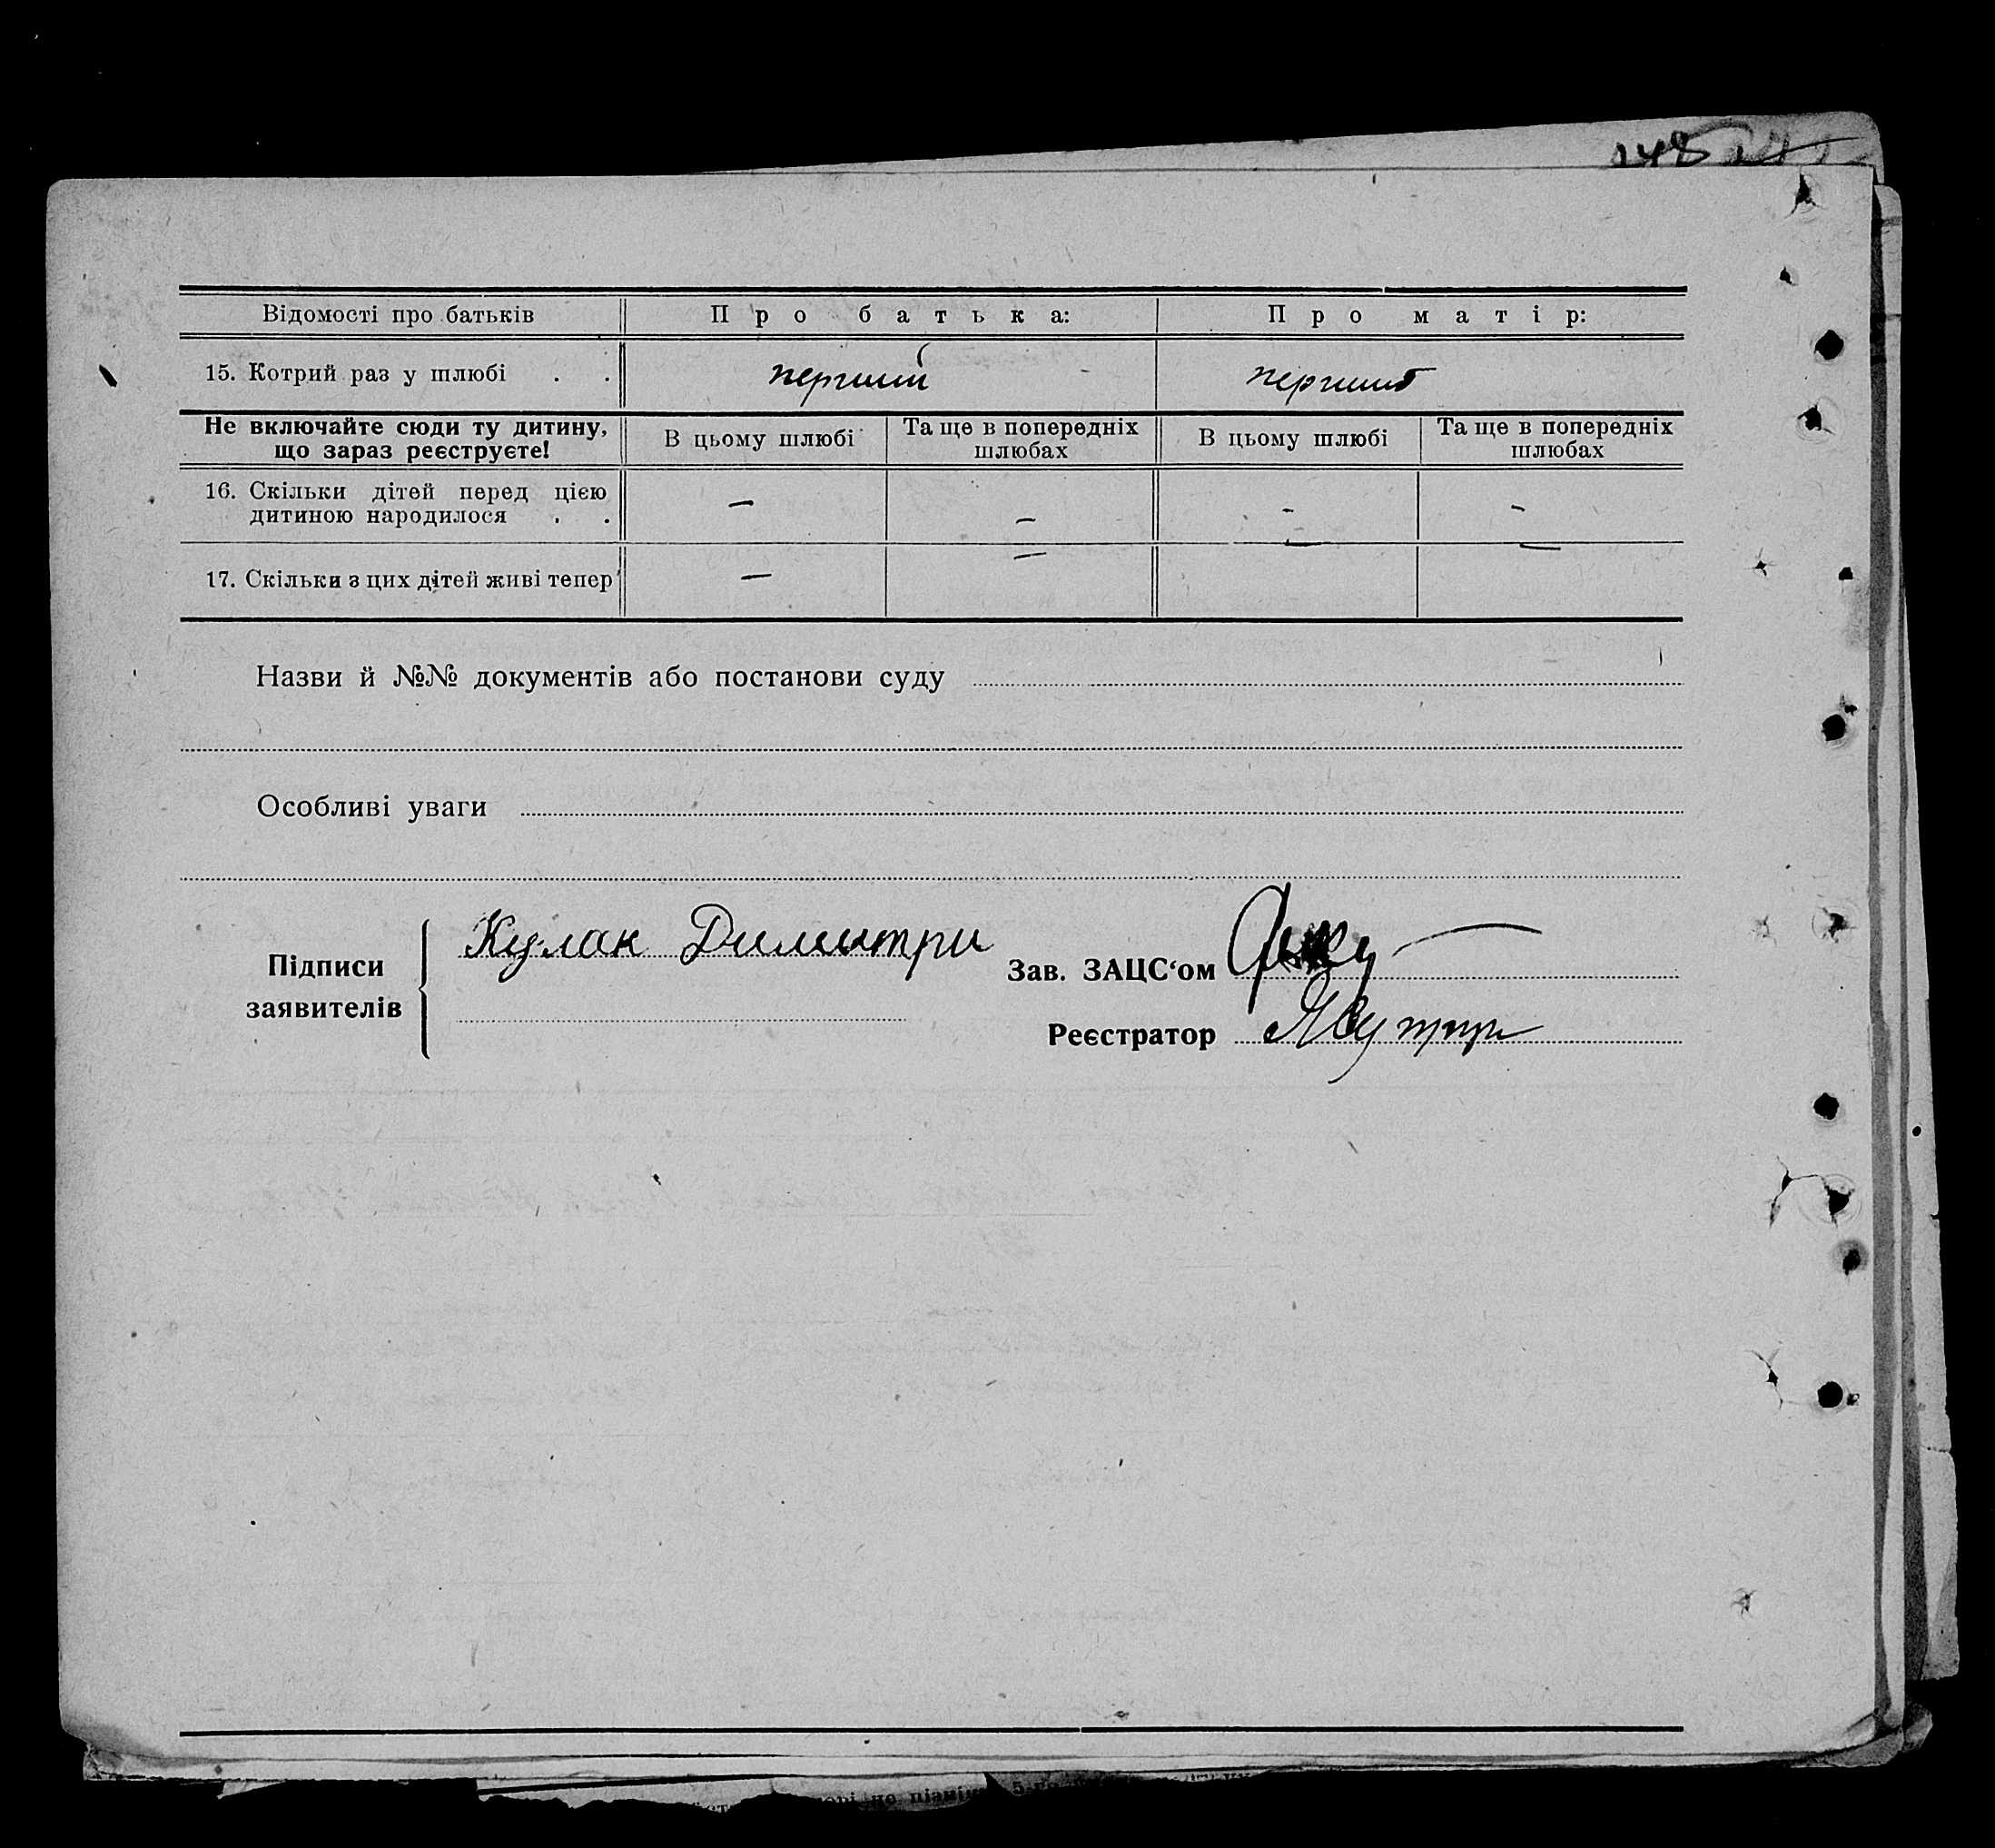 148
Відомості про батьків Про батька: Про матір:
15. Котрий раз у шлюбі . . перший перший
Не включайте сюди ту дитину, що зараз реєструєте! В цьому шлюбі Та ще в попередніх шлюбах В цьому шлюбі Та ще в попередніх шлюбах
16. Скільки дітей перед цією
дитиною народилося . . — — - -
17. Скільки з цих дітей живі тепер — — — —
Назви й №№ документів або постанови суду
Особливі уваги
Підписи заявителів Кулак Димитри
Зав. ЗАЦС‘ом
Реєстратор